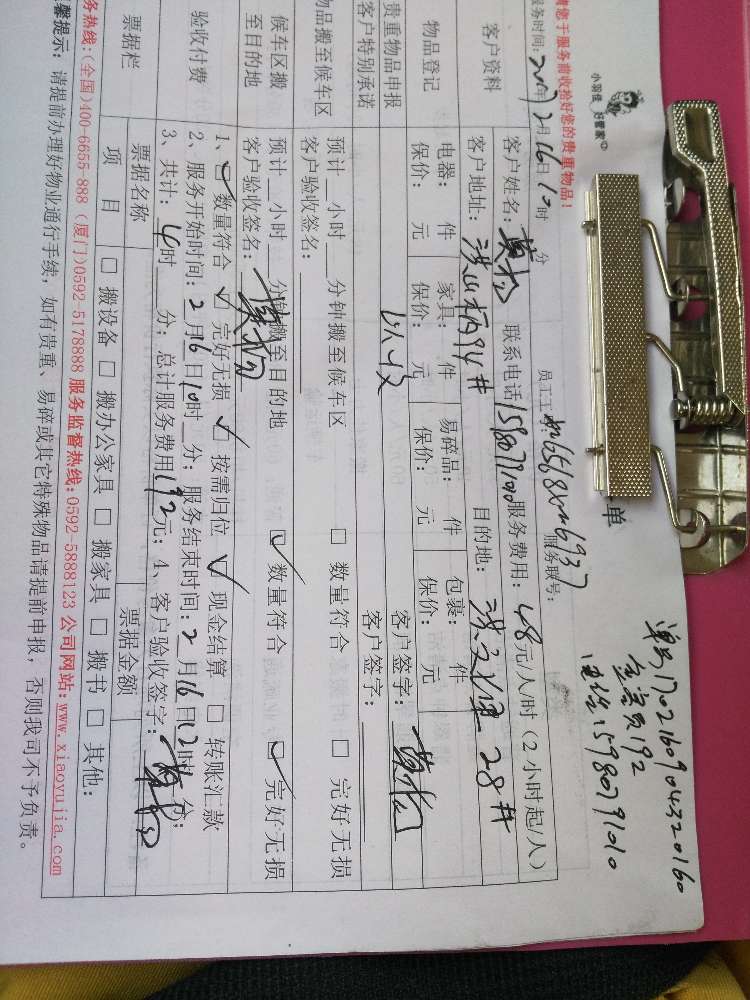 小羽佳 好管家
单
单号1702160904320160
全套员192
电话:15980791010
请您于服务前收拾好您的贵重物品!
服务时间: 2017年2月16日10时 分
员工工号 服务联号:
客户资料
客户姓名: 联系电话 服务费用: 48元/人/时(2小时起/人)
客户地址: 目的地:
物品登记
电器: 件 家具: 件 易碎品: 件 包裹: 件
保价: 元 保价: 元 保价: 元 保价: 元
贵重物品申报 客户签字:
客户特别承诺 客户签字:
物品搬至候车区
预计 小时 分钟搬至候车区 □ 数量符合 □ 完好无损
客户验收签名:
候车区搬至目的地
预计 小时 分钟搬至目的地 □ 数量符合 □ 完好无损
客户验收签名:
验收付费
1、□ 数量符合 □ 完好无损 □ 按需归位 □ 现金结算 □ 转账汇款
2、服务开始时间: 2月16日10时 分; 服务结束时间: 2月16日12时 分;
3、共计: 4时 分; 总计服务费用192元; 4、客户验收签字:
票据栏
票据名称 票据金额
项 目 □ 搬设备 □ 搬办公家具 □ 搬家具 □ 搬书 □ 其他:
务热线:(全国)400-6655-888 (厦门)0592-5178888 服务监督热线:0592-5888123 公司网站:www.xiaoyujia.com
馨提示: 请提前办理好物业通行手续,如有贵重、易碎或其它特殊物品请提前申报,否则我司不予负责。